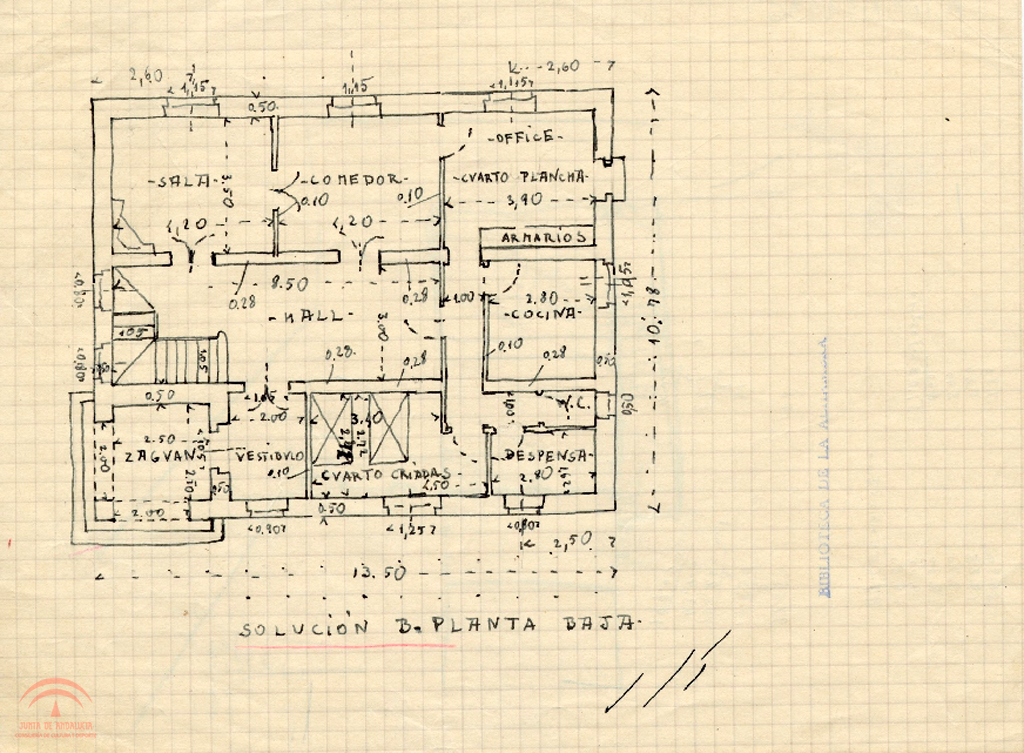 2,60
1,15
1,15
2,60
1,15
0.50.
-OFFICE-
-SALA-
3.50
-COMEDOR-
-CVARTO PLANCHA-
0.10
0.10
3,90
4,20
4,20
ARMARIOS
8.50
0.28
0.28
1.00
2.80
1,05
10.78
-HALL-
3.00
-COCINA-
0,80
1.05
0.28.
0,28
0.10
0.28
0,80
1.05
0.50
1.05
2.00
3.40
1.00
W.C.
0,50
2.50
ZAGVAN
1.05
VESTIBVLO
2.72
DESPENSA-
2.00
2.50
0.10
CVARTO CRIADAS-
4.50
2.80
2.00
0.50
0.50
0.90
1,25
0.80
2,50
13.50
SOLUCIÓN B. PLANTA BAJA.
BIBLIOTECA DE LA A
JUNTA DE ANDALUCIA